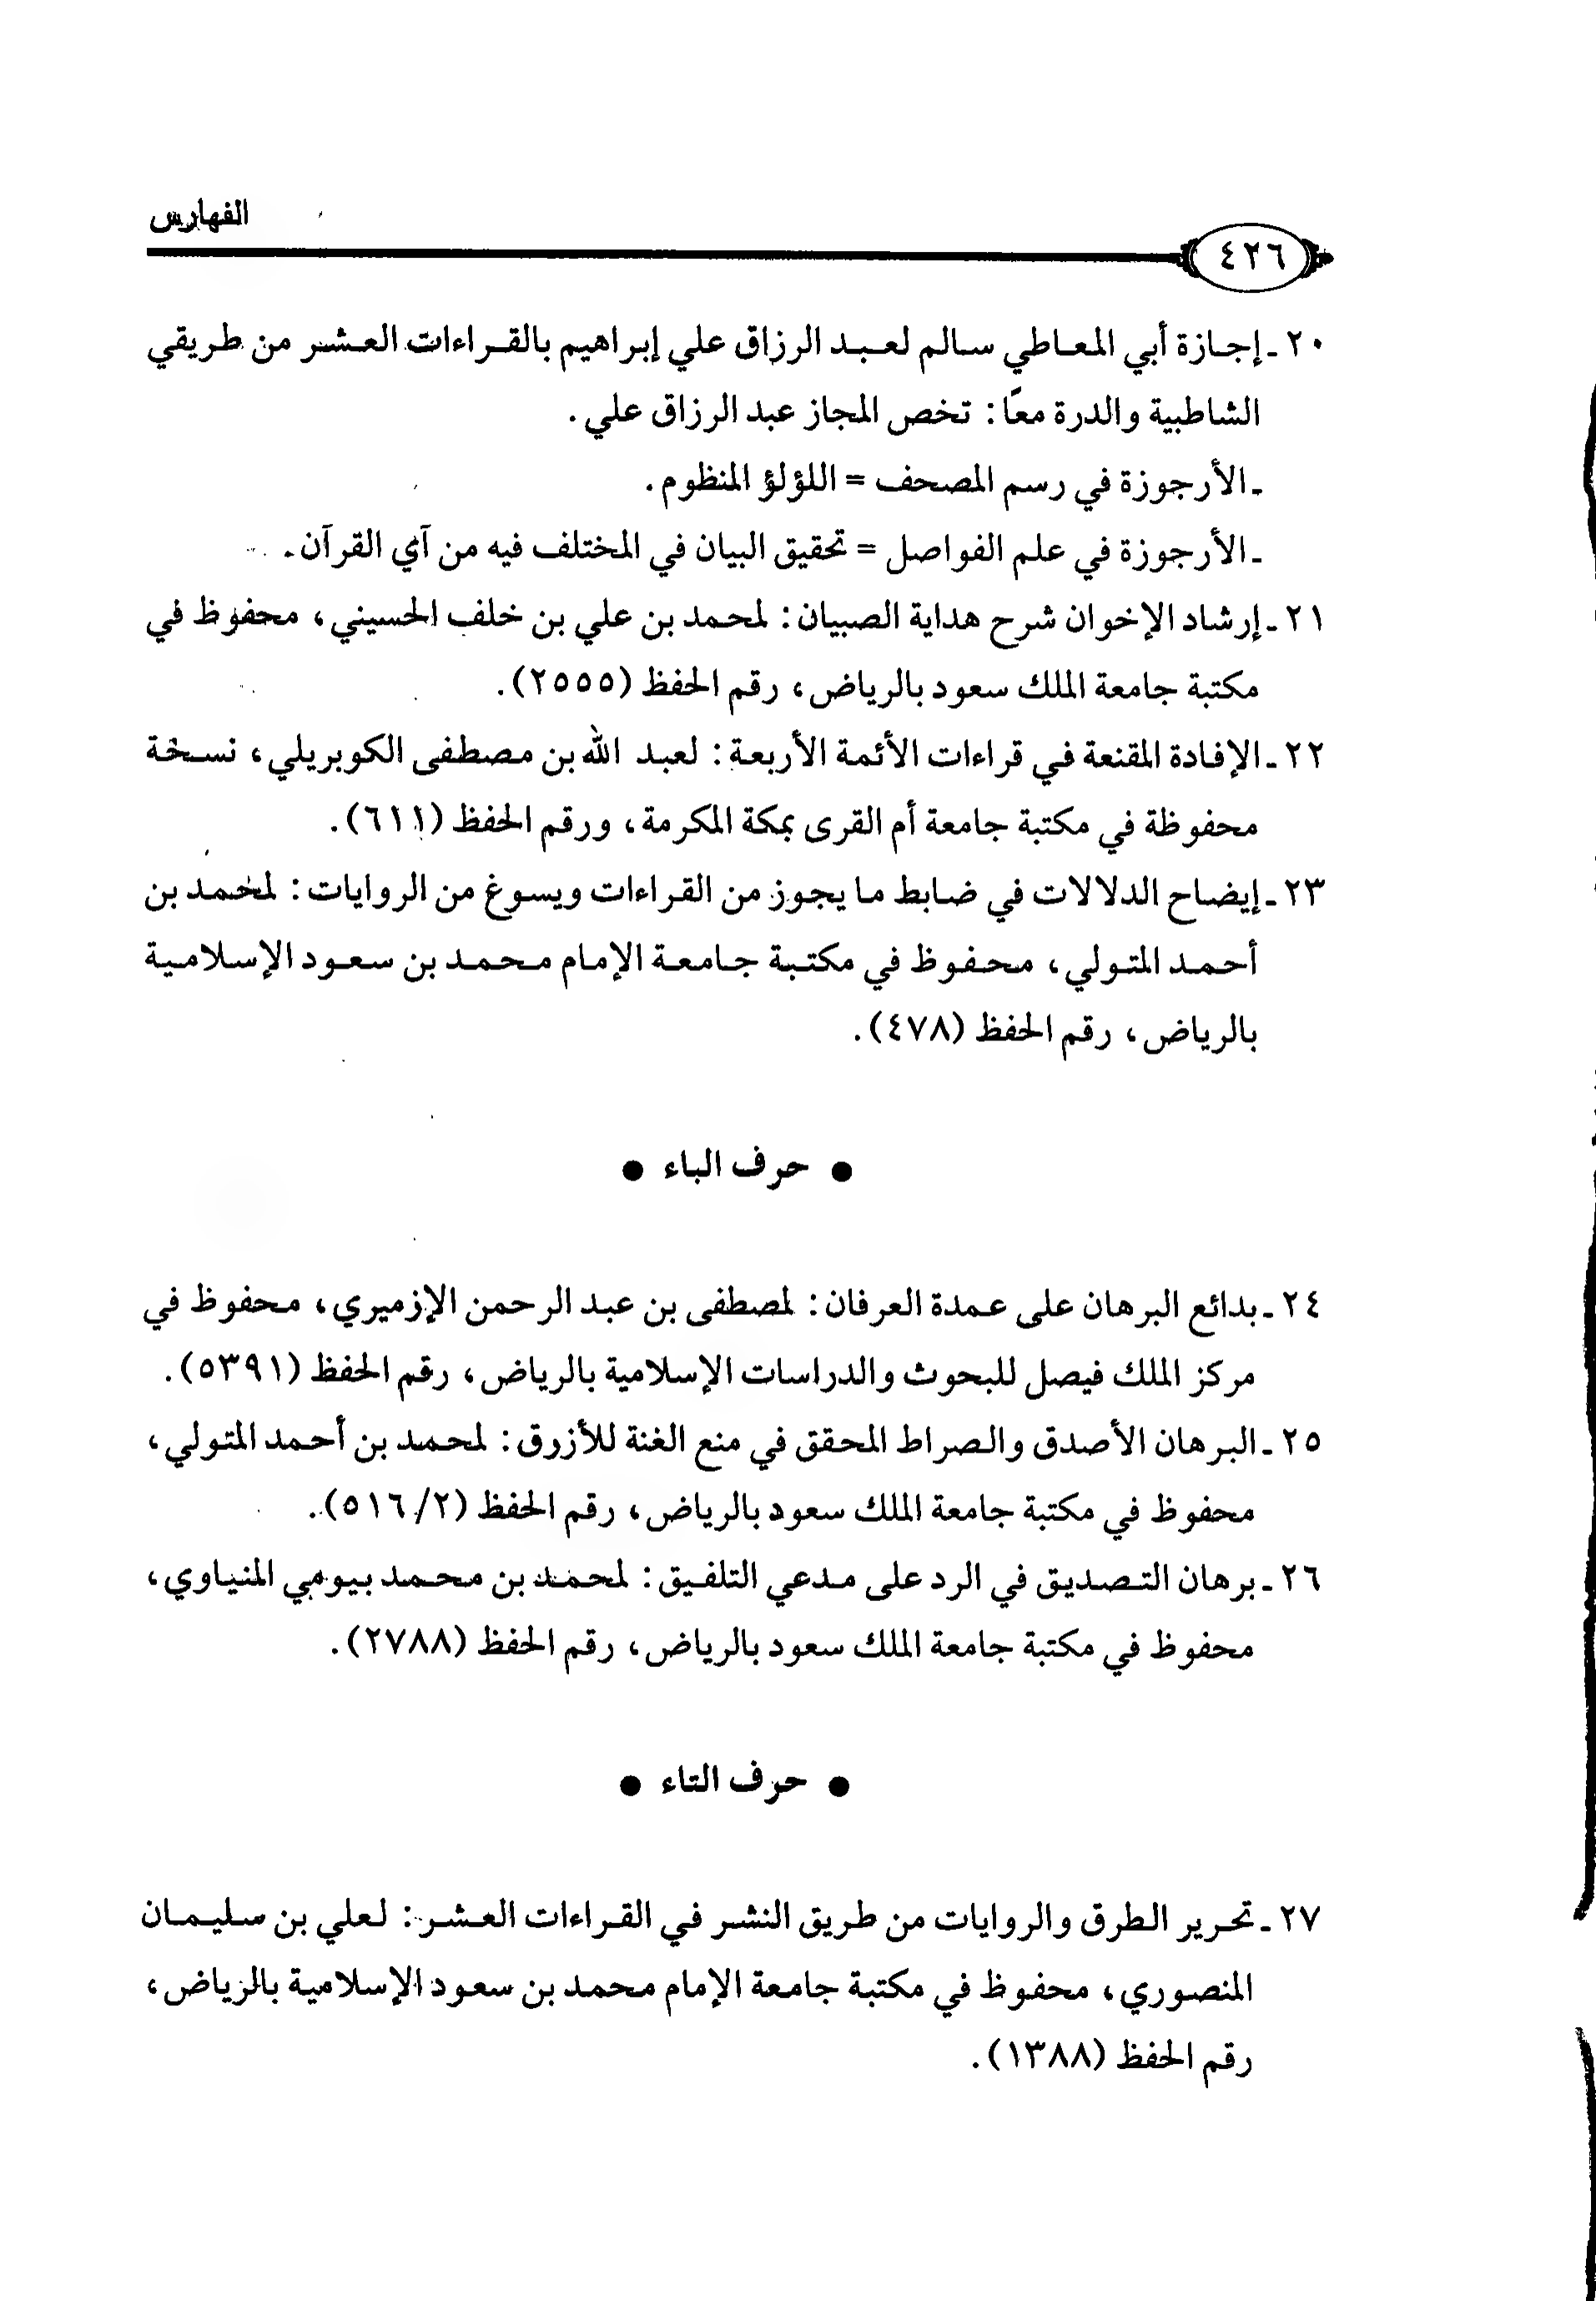 الفهارس
٤٢٦
٢٠ ـ إجازة أبي المعاطي سالم لعبد الرزاق علي إبراهيم بالقراءات العشر من طريقي
الشاطبية والدرة معًا: تخص المجاز عبد الرزاق علي.
ـ الأرجوزة في رسم المصحف = اللؤلؤ المنظوم.
ـ الأرجوزة في علم الفواصل = تحقيق البيان في المختلف فيه من آي القرآن.
٢١ ـ إرشاد الإخوان شرح هداية الصبيان: لمحمد بن علي بن خلف الحسيني، محفوظ في
مكتبة جامعة الملك سعود بالرياض، رقم الحفظ (٢٥٥٥).
٢٢ ـ الإفادة المقنعة في قراءات الأئمة الأربعة: لعبد الله بن مصطفى الكوبريلي، نسخة
محفوظة في مكتبة جامعة أم القرى بمكة المكرمة، ورقم الحفظ (٦١١).
٢٣ ـ إيضاح الدلالات في ضابط ما يجوز من القراءات ويسوغ من الروايات: لمحمد بن
أحمد المتولي، محفوظ في مكتبة جامعة الإمام محمد بن سعود الإسلامية
بالرياض، رقم الحفظ (٤٧٨).
● حرف الباء ●
٢٤ ـ بدائع البرهان على عمدة العرفان: لمصطفى بن عبد الرحمن الإزميري، محفوظ في
مركز الملك فيصل للبحوث والدراسات الإسلامية بالرياض، رقم الحفظ (٥٣٩١).
٢٥ ـ البرهان الأصدق والصراط المحقق في منع الغنة للأزرق: لمحمد بن أحمد المتولي،
محفوظ في مكتبة جامعة الملك سعود بالرياض، رقم الحفظ (٥١٦/٢).
٢٦ ـ برهان التصديق في الرد على مدعي التلفيق: لمحمد بن محمد بيومي المنياوي،
محفوظ في مكتبة جامعة الملك سعود بالرياض، رقم الحفظ (٢٧٨٨).
● حرف التاء ●
٢٧ ـ تحرير الطرق والروايات من طريق النشر في القراءات العشر: لعلي بن سليمان
المنصوري، محفوظ في مكتبة جامعة الإمام محمد بن سعود الإسلامية بالرياض،
رقم الحفظ (١٣٨٨).